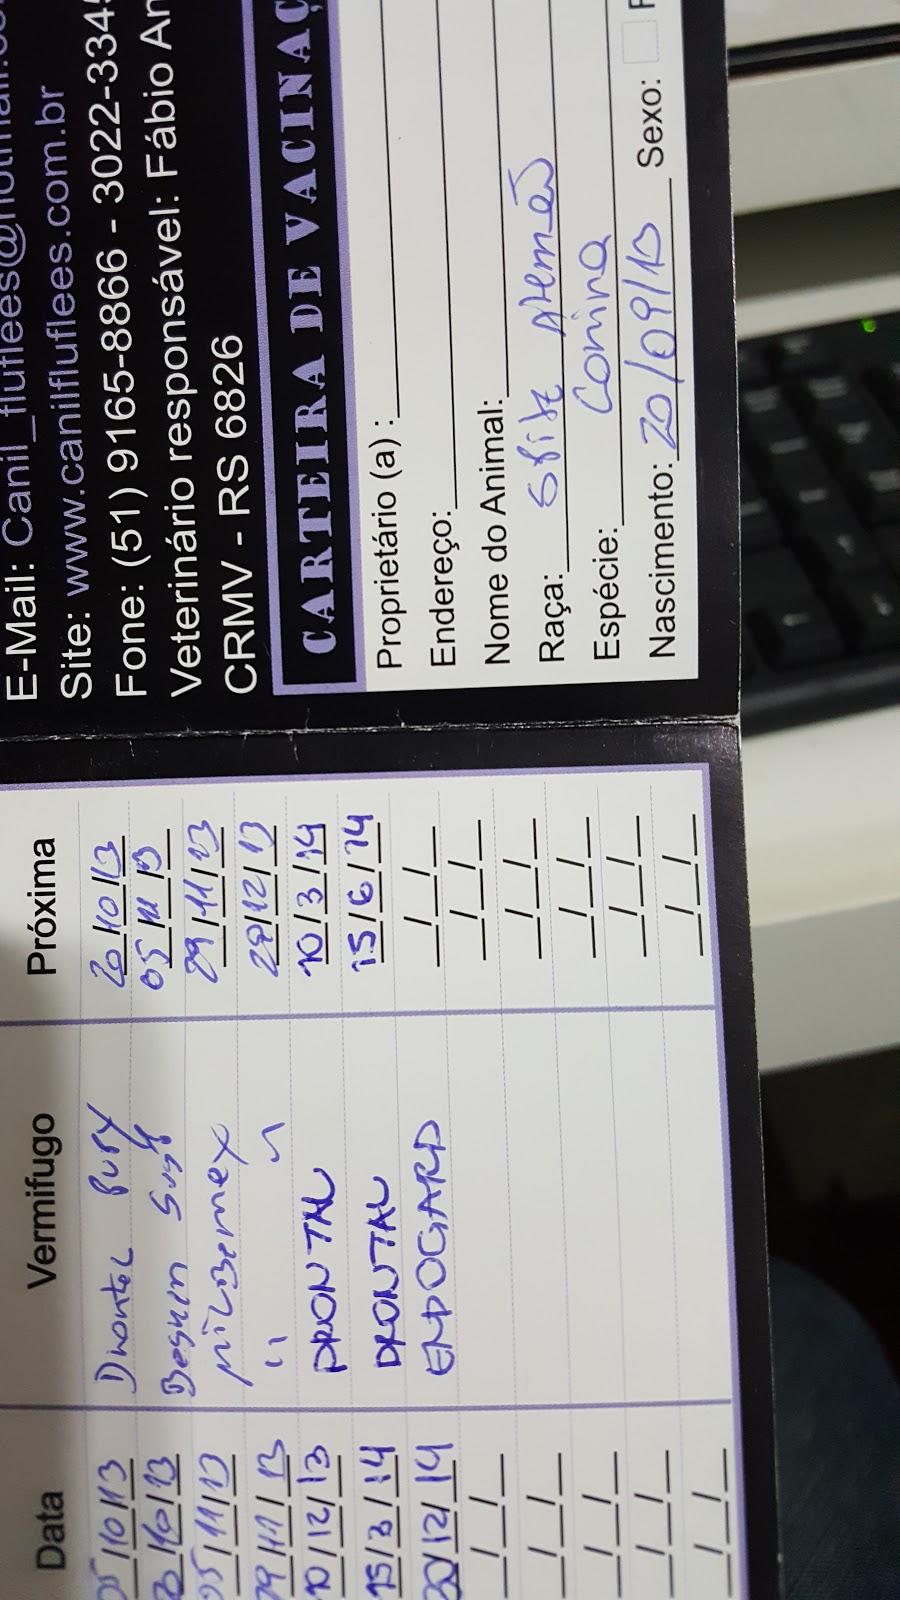 E-Mail: Canil_fluflees@hotmail.co
Site: www.canilfluflees.com.br
Fone: (51) 9165-8866 - 3022-334
Veterinário responsável: Fábio An
CRMV - RS 6826
CARTEIRA DE VACINAÇ
Proprietário (a) :
Endereço:
Nome do Animal:
Raça: Spitz Alemão
Espécie: Canina
Nascimento: 20/09/13 Sexo: F
Data Vermifugo Próxima
05/10/13 Drontal Pupy 20/10/13
/10/13 05/11/13
05/11/13 milbemex 29/11/13
29/11/13 " " 29/12/13
10/12/13 DRONTAL 10/3/14
15/3/14 DRONTAL 15/6/14
20/12/14 ENDOGARD